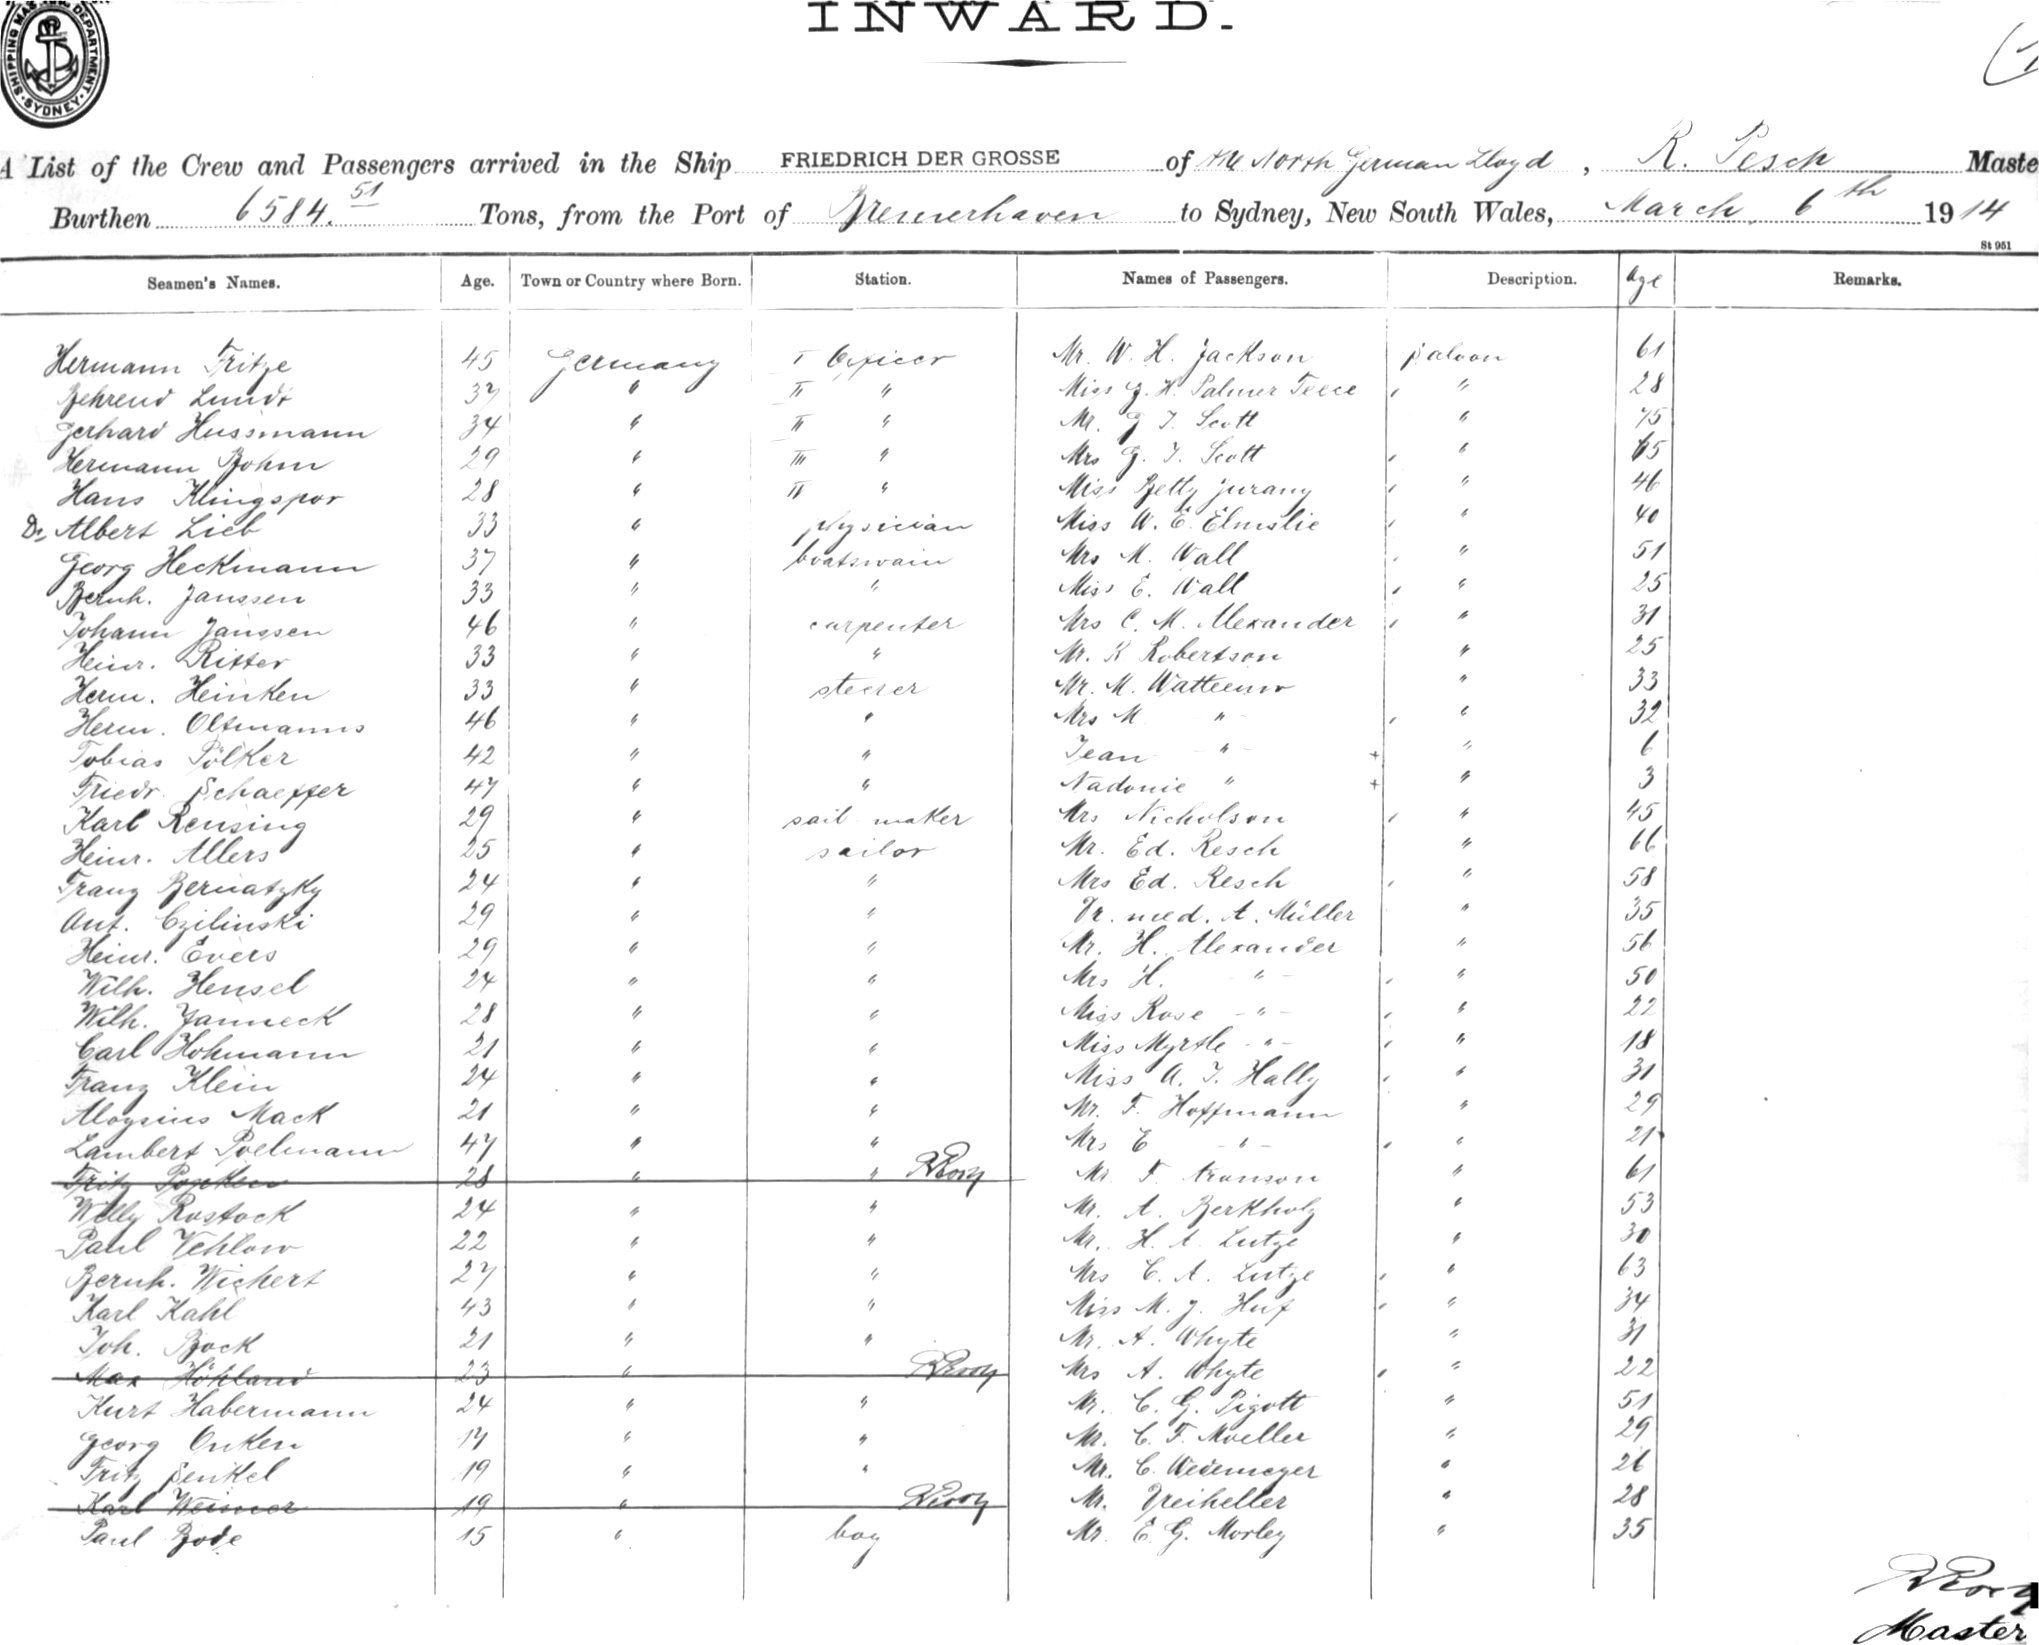 SHIPPING MASTER'S DEPARTMENT SYDNEY
INWARD.
A List of the Crew and Passengers arrived in the Ship FRIEDRICH DER GROSSE of the North German Lloyd, R. Pesch Maste
Burthen 6584.51 Tons, from the Port of Bremerhaven to Sydney, New South Wales, March 6th 1914
St 951
Seamen's Names. Age. Town or Country where Born. Station. Names of Passengers. Description. Age Remarks.
Hermann Fritze 45 Germany I Officer Mr. W. H. Jackson Saloon 61
Behrend Lundt 37 " II " Miss G. H. Palmer Teece " 28
Gerhard Hussmann 34 " II " Mr. G. T. Scott " 75
Hermann Bohm 29 " III " Mrs G. T. Scott " 65
Hans Klingspor 28 " II " Miss Betty Jurany " 46
Dr Albert Lieb 33 " physician Miss W. E. Elmslie " 40
Georg Heckmann 37 " boatswain Mrs M. Wall " 51
Bernh. Janssen 33 " " Miss E. Wall " 25
Johann Janssen 46 " carpenter Mrs C. M. Alexander " 31
Heinr. Ritter 33 " " Mr. K Robertson " 25
Herm. Heinken 33 " steerer Mr. M. Watteeuw " 33
Herm. Oltmanns 46 " " Mrs M " " 32
Tobias Pölker 42 " " Jean " + " 6
Friedr. Schaeffer 47 " " Nadonie " + " 3
Karl Rensing 29 " sail maker Mrs Nicholson " 45
Heinr. Allers 25 " sailor Mr. Ed. Resch " 66
Franz Bernatzky 24 " " Mrs Ed. Resch " 58
Ant. Czilinski 29 " " Dr. med. A. Müller " 35
Heinr. Evers 29 " " Mr. H. Alexander " 56
Wilh. Hensel 24 " " Mrs H. " " 50
Wilh. Janneck 28 " " Miss Rose " " 22
Carl Hohmann 21 " " Miss Myrtle " " 18
Franz Klein 24 " " Miss A. T. Hally " 31
Aloysius Mack 21 " " Mr. F. Hoffmann " 29
Lambert Poelmann 47 " " Mrs E " " 21
Fritz Popken 28 " " Mr. F. Aronson " 61
Willy Rostock 24 " " Mr. A. Berkholz " 53
Paul Vehlow 22 " " Mr. H. A. Lutze " 30
Bernh. Wichert 27 " " Mrs C. A. Lutze " 63
Karl Kahl 43 " " Miss M. J. Huf " 34
Joh. Bock 21 " " Mr. A. Whyte " 31
Max Höhland 23 " Mrs A. Whyte " 22
Kurt Habermann 24 " " Mr. C. G. Pigott " 51
Georg Onken 17 " " Mr. C. F. Moeller " 29
Fritz Senkel 19 " " Mr. C. Wedemeyer " 26
Karl Weimer 19 " Mr. Dreiheller " 28
Paul Bode 15 " boy Mr. E. G. Morley " 35
Master